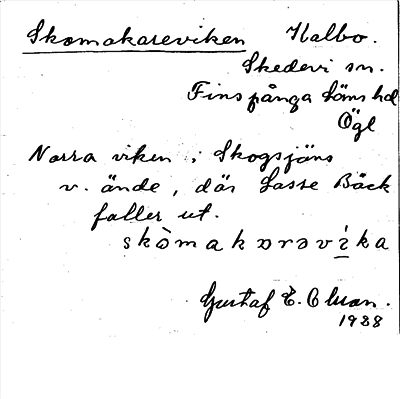 Skomakareviken Kalbo.
Skedevi sn.
Finspånga läns hd
Ögl
Norra viken i Skogsjöns
v. ände, där Lasse Bäck
faller ut.
skòmakarəvi̲ka
Gustaf E. Olsson.
1938